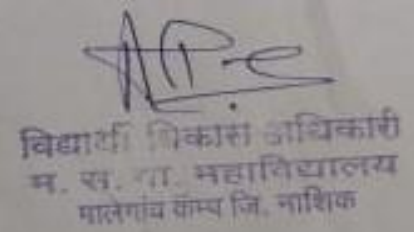 विद्यार्थी विकास अधिकारी
म. स. गा. महाविद्यालय
मालेगांव कॅम्प जि. नाशिक